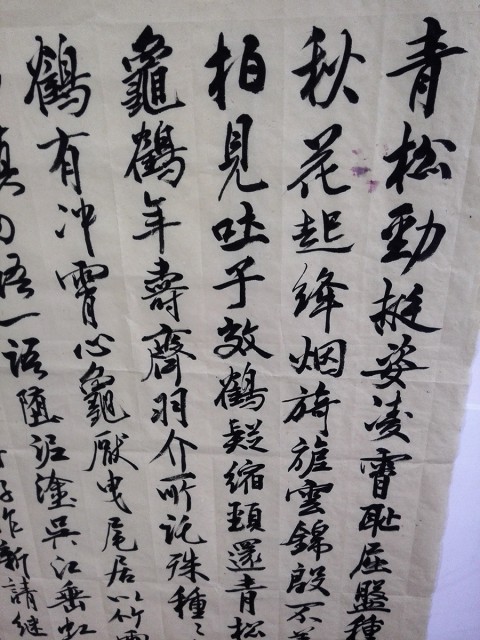 青松勁挺姿凌霄恥屈盤種
秋花起絳烟旖旎雲錦殷不
柏見吐子效鶴疑縮頸還青松
龜鶴年壽齊羽介所託殊種
鶴有冲霄心龜厭曳尾居以竹
慎勿語一語墮泥塗吳江垂虹
作新請継